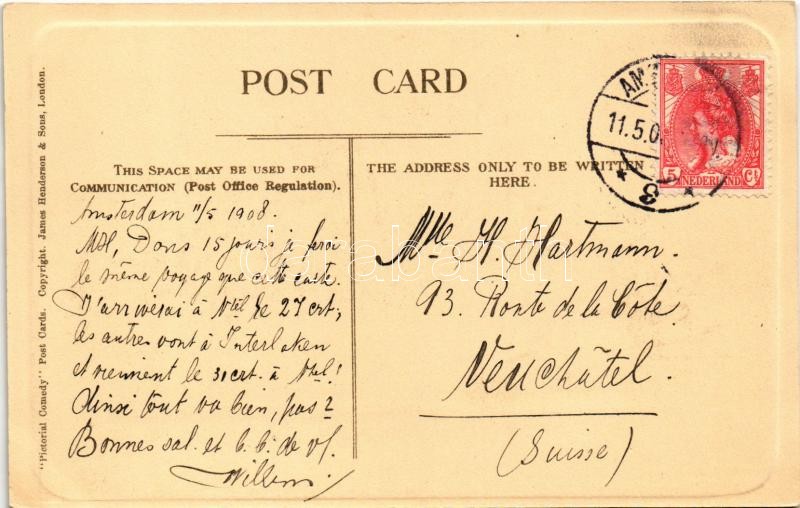 "Pictorial Comedy" Post Cards. Copyright. James Henderson & Sons, London.
POST CARD
THIS SPACE MAY BE USED FOR
COMMUNICATION (Post Office Regulation).
THE ADDRESS ONLY TO BE WRITTEN
HERE.
AM
11.5.0
3
5 NEDERLAND Ct
Amsterdam 11/5 1908.
Dans 15 jours je ferai
le même voyage que cette carte.
J'arriverai à Ntel le 27 crt,
les autres vont à Interlaken
et viennent le 31 crt. à Ntel!
Ainsi tout va bien, pas?
Bonnes sal. et b. b. de vf.
Willem.
Mlle H. Hartmann.
93. Route de la Côte.
Neuchâtel.
(Suisse)
darabanth